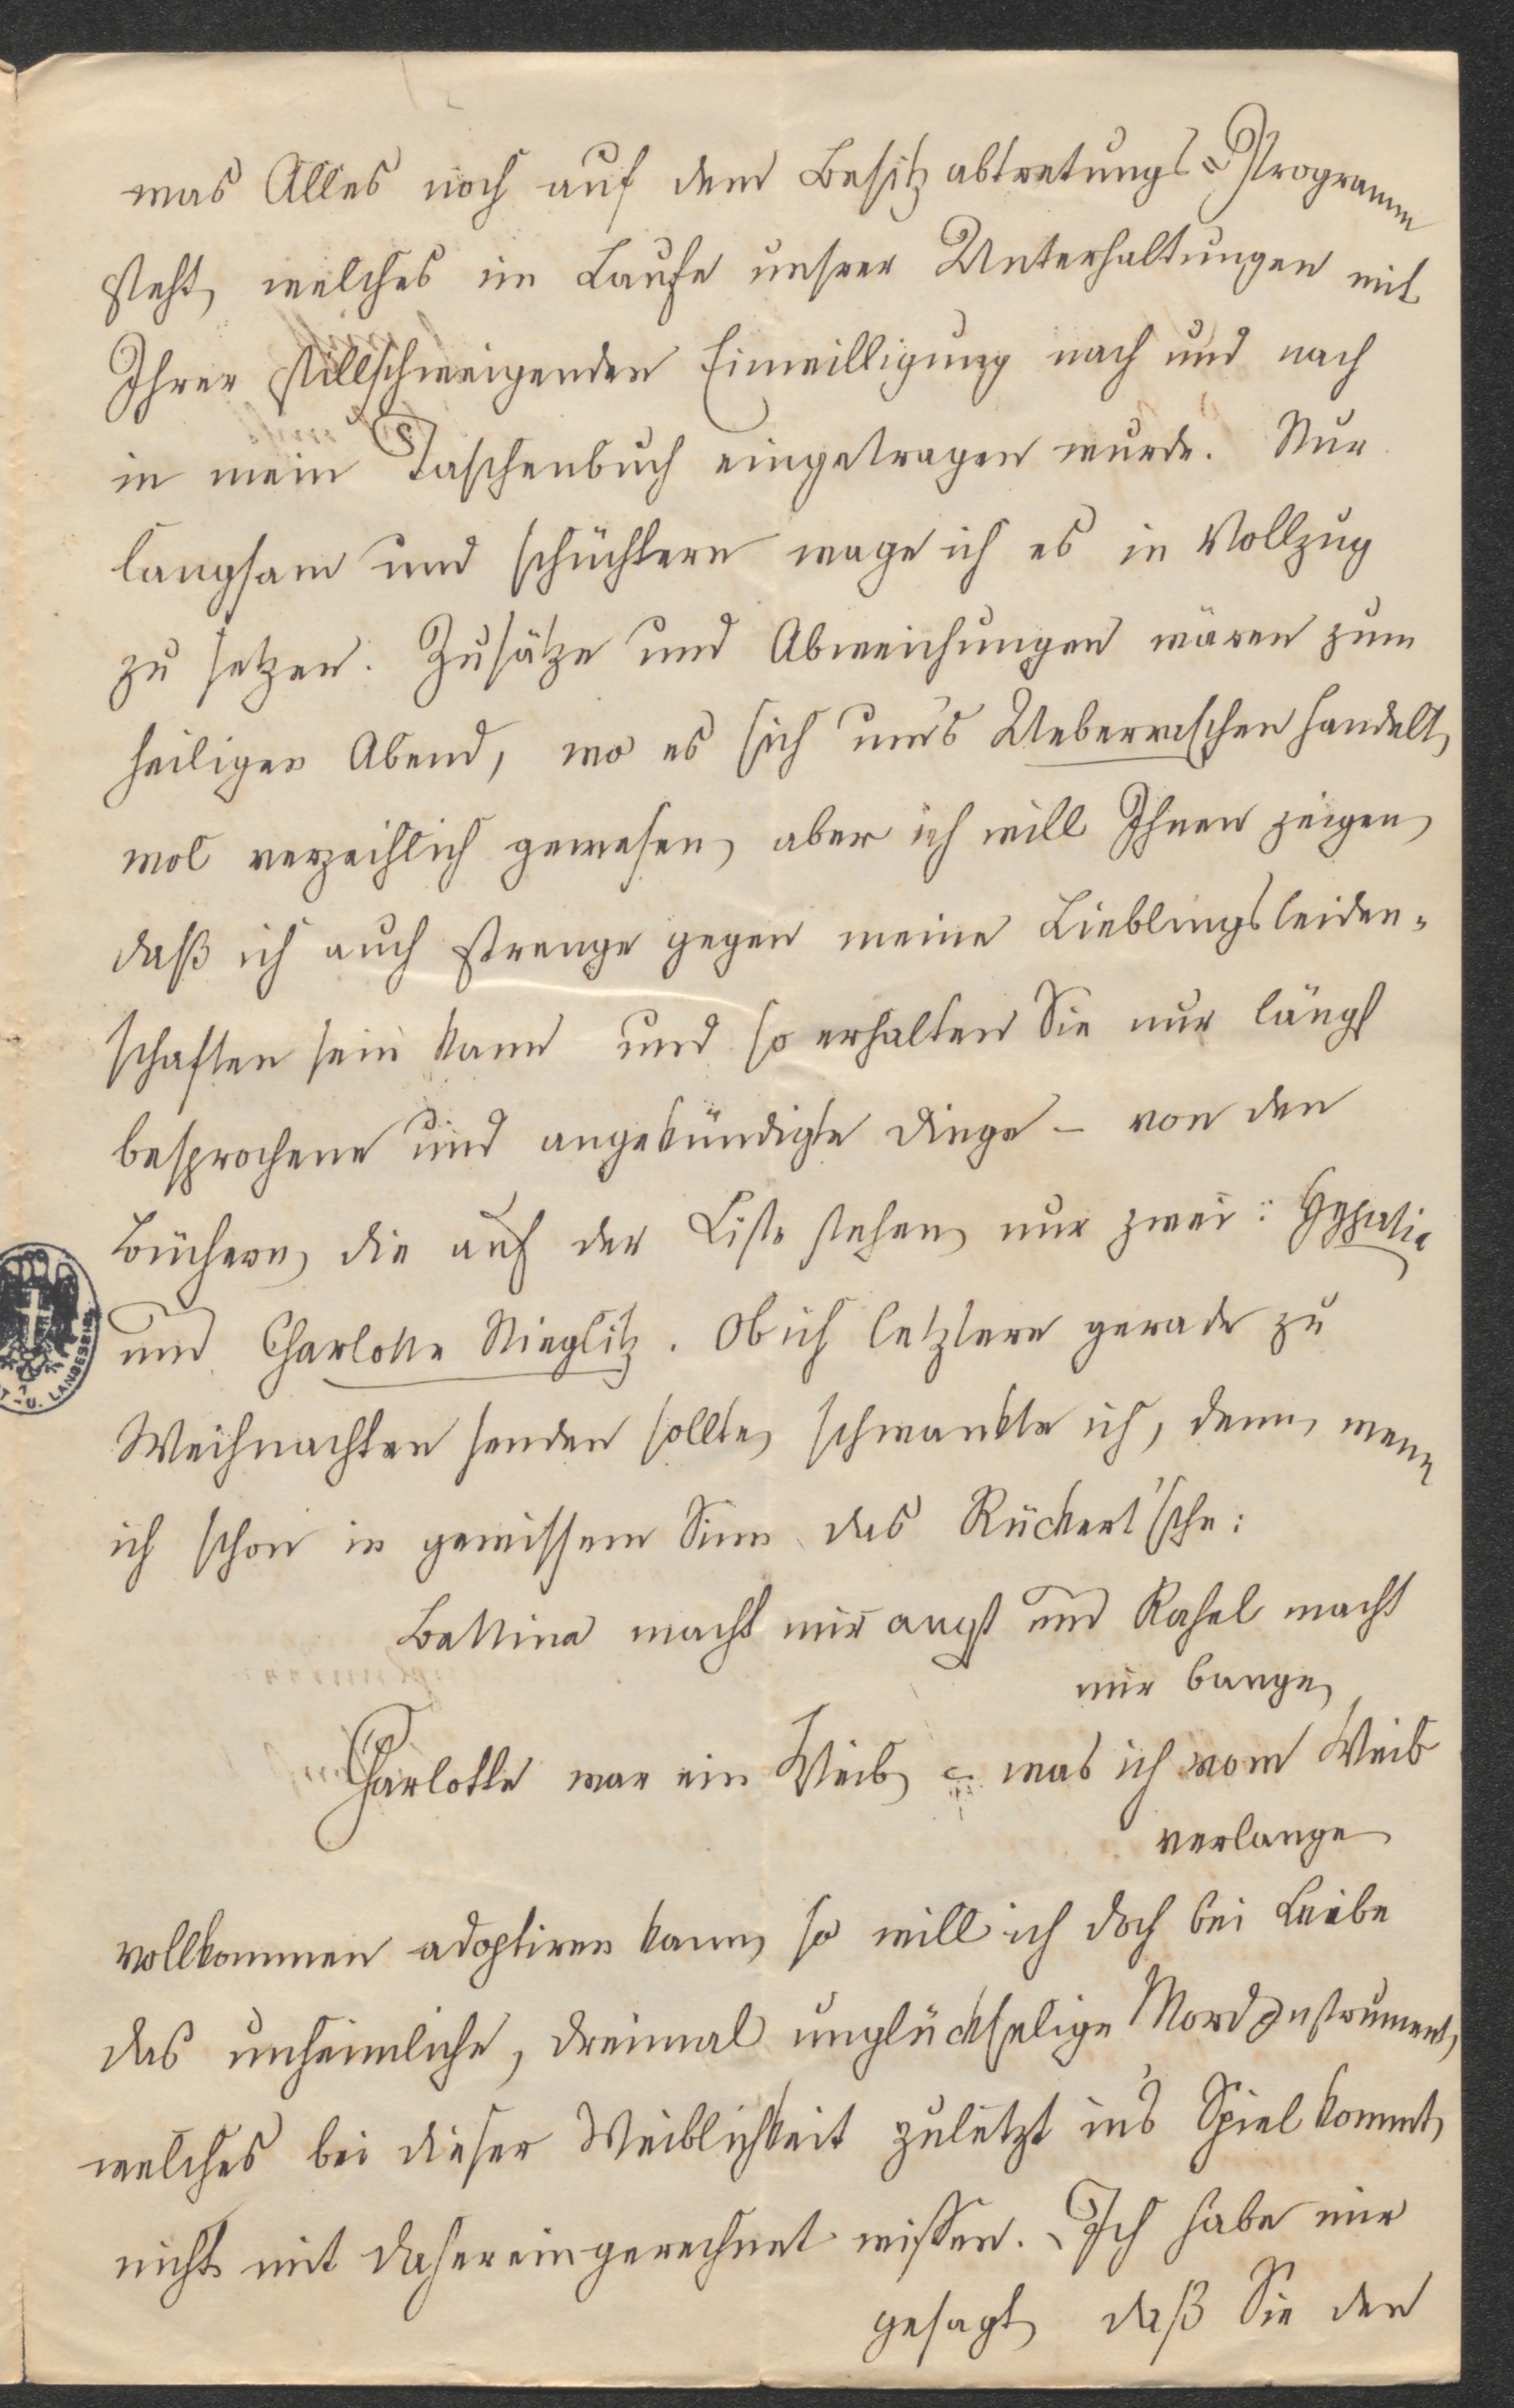 was Alles noch auf dem Besitzabtretungs=Programm
steht, welches im Laufe unsrer Unterhaltungen mit
Ihrer stillschweigenden Einwilligung nach und nach
in mein Taschenbuch eingetragen wurde. Nur
langsam und schüchtern wage ich es in Vollzug
zu setzen. Zusätze und Abweichungen wären zum
heiligen Abend, wo es sich um's Ueberraschen handelt,
wol verzeihlich gewesen, aber ich will Ihnen zeigen,
daß ich auch strenge gegen meine Lieblingsleiden-
schaften sein kann und so erhalten Sie nur längst
besprochene und angekündigte Dinge – von den
Büchern, die auf der Liste stehen, nur zwei: Hypatia
und Charlotte Stieglitz. Ob ich letztere gerade zu
Weihnachten senden sollte, schwankte ich, denn, wenn
ich schon in gewissem Sinn das Rückert'sche:
Bettina macht mir angst und Rahel macht
mir bange,
Charlotte war ein Weib, – was ich vom Weib
verlange
vollkommen adoptiren kann, so will ich doch bei Leibe
das unheimliche, dreimal unglückselige Mordinstrument,
welches bei dieser Weiblichkeit zuletzt in's Spiel kommt,
nicht mit dahereingerechnet wissen. Ich habe mir
gesagt, daß Sie den
U. LANDESBIB